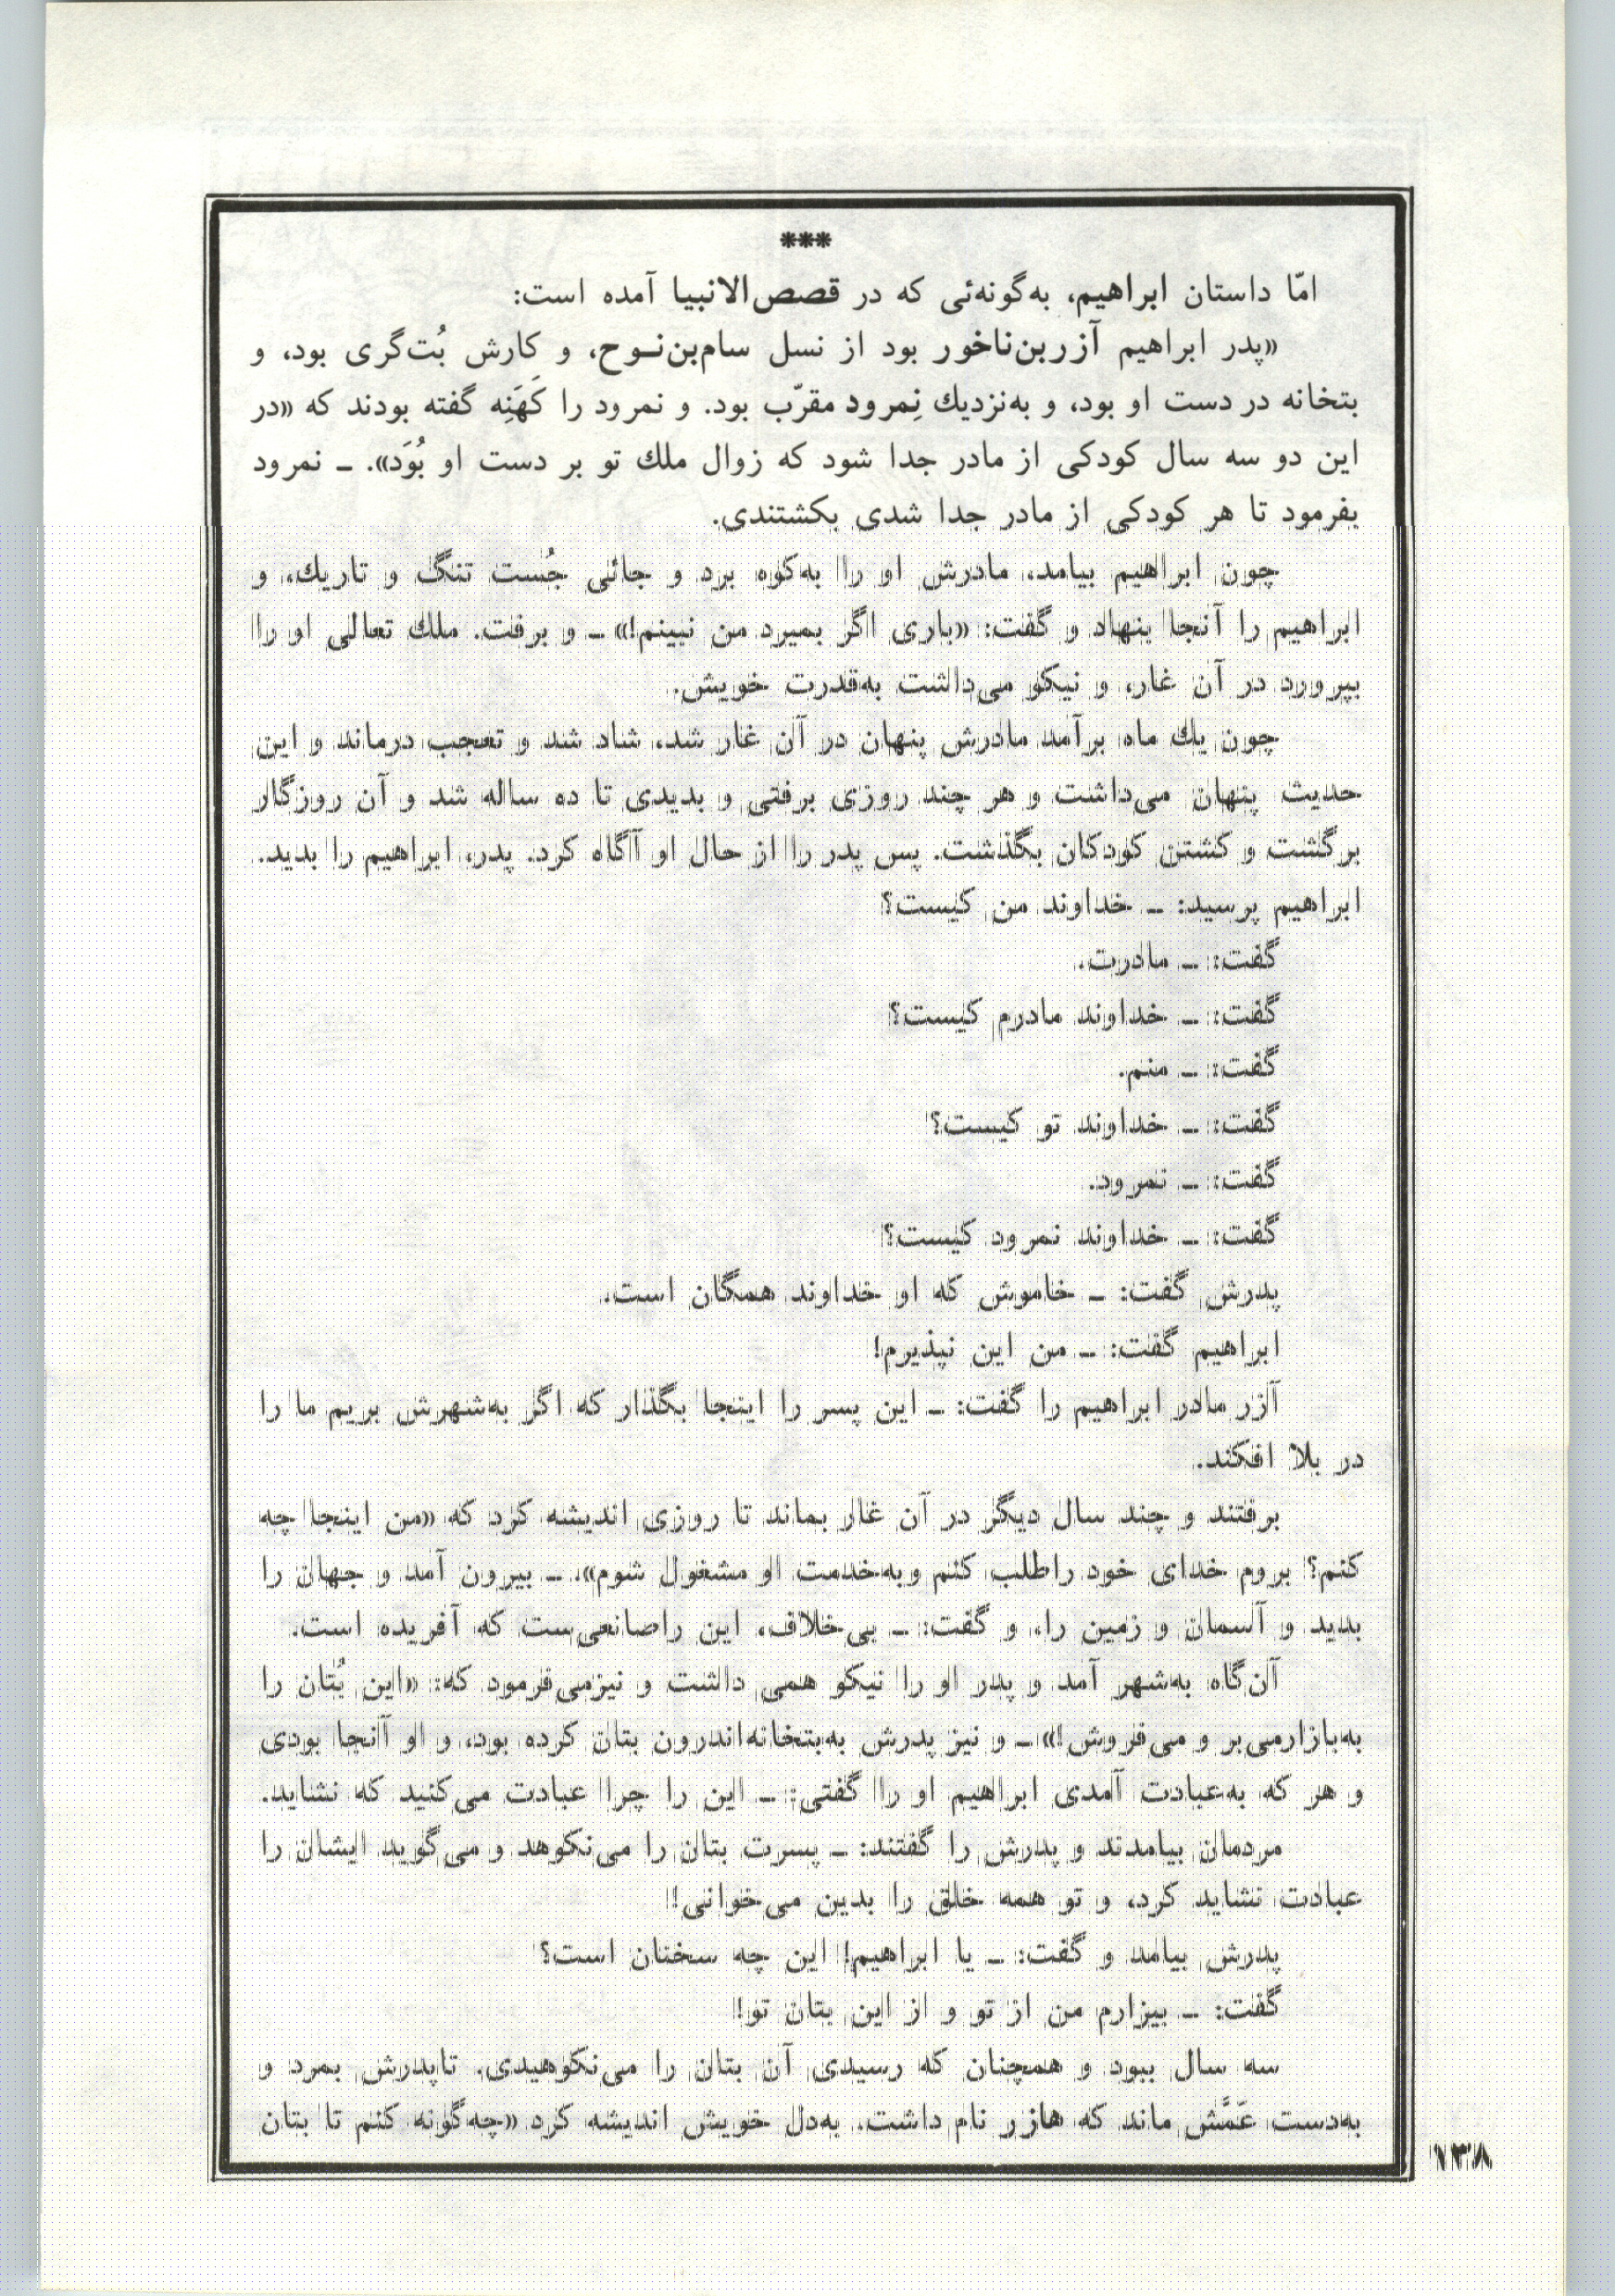 ***
امّا داستان ابراهیم، به‌گونه‌ئی که در قصص‌الانبیا آمده است:
«پدر ابراهیم آزربن‌ناخور بود از نسل سام‌بن‌نـوح، و کارش بُت‌گری بود، و
بتخانه در دست او بود، و به‌نزدیك نِمرود مقرّب بود. و نمرود را کَهَنِه گفته بودند که «در
این دو سه سال کودکی از مادر جدا شود که زوال ملك تو بر دست او بُوَد». ـ نمرود
بفرمود تا هر کودکی از مادر جدا شدی بکشتندی.
چون ابراهیم بیامد، مادرش او را به‌کوه برد و جائی جُست تنگ و تاریك، و
ابراهیم را آنجا بنهاد و گفت: «باری اگر بمیرد من نبینم!» ـ و برفت. ملك تعالی او را
بپرورد در آن غار، و نیکو می‌داشت به‌قدرت خویش.
چون یك ماه برآمد مادرش پنهان در آن غار شد، شاد شد و تعجب درماند و این
حدیث پنهان می‌داشت و هر چند روزی برفتی و بدیدی تا ده ساله شد و آن روزگار
برگشت و کشتن کودکان بگذشت. پس پدر را از حال او آگاه کرد. پدر، ابراهیم را بدید.
ابراهیم پرسید: ـ خداوند من کیست؟
گفت: ـ مادرت.
گفت: ـ خداوند مادرم کیست؟
گفت: ـ منم.
گفت: ـ خداوند تو کیست؟
گفت: ـ نمرود.
گفت: ـ خداوند نمرود کیست؟
پدرش گفت: ـ خاموش که او خداوند همگان است.
ابراهیم گفت: ـ من این نپذیرم!
آزر مادر ابراهیم را گفت: ـ این پسر را اینجا بگذار که اگر به‌شهرش بریم ما را
در بلا افکند.
برفتند و چند سال دیگر در آن غار بماند تا روزی اندیشه کرد که «من اینجا چه
کنم؟ بروم خدای خود راطلب کنم وبه‌خدمت او مشغول شوم». ـ بیرون آمد و جهان را
بدید و آسمان و زمین را، و گفت: ـ بی‌خلاف، این راصانعی‌ست که آفریده است.
آن‌گاه به‌شهر آمد و پدر او را نیکو همی داشت و نیزمی‌فرمود که: «این بُتان را
به‌بازارمی‌بر و می‌فروش!» ـ و نیز پدرش به‌بتخانه‌اندرون بتان کرده بود، و او آنجا بودی
و هر که به‌عبادت آمدی ابراهیم او را گفتی: ـ این را چرا عبادت می‌کنید که نشاید.
مردمان بیامدند و پدرش را گفتند: ـ پسرت بتان را می‌نکوهد و می‌گوید ایشان را
عبادت نشاید کرد، و تو همه خلق را بدین می‌خوانی!
پدرش بیامد و گفت: ـ یا ابراهیم! این چه سخنان است؟
گفت: ـ بیزارم من از تو و از این بتان تو!
سه سال ببود و همچنان که رسیدی آن بتان را می‌نکوهیدی. تاپدرش بمرد و
به‌دست عَمَّش ماند که هازر نام داشت. به‌دل خویش اندیشه کرد «چه‌گونه کنم تا بتان
۱۳۸